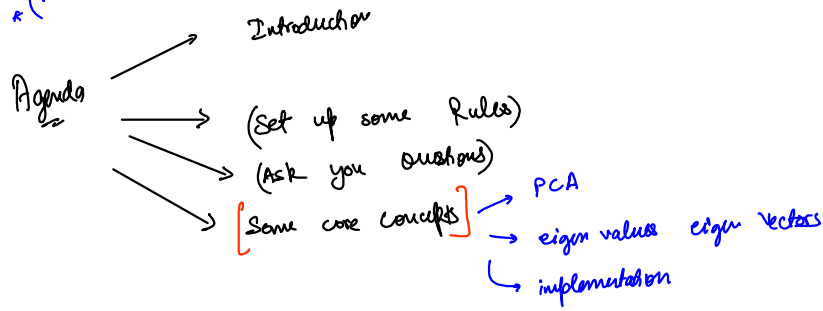 Introduction
Agenda
(Set up some Rules)
(Ask you Questions)
[Some core concepts]
PCA
eigen values eigen vectors
implementation